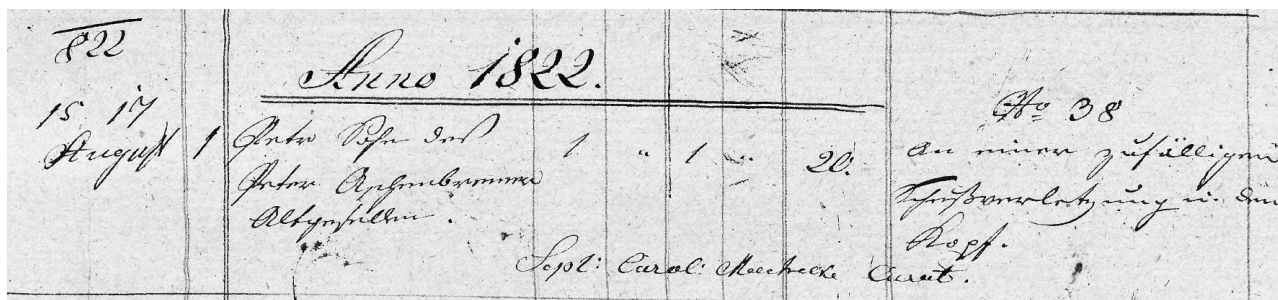 822
Anno 1822.
15 17
August 1 Petr Sohn des 1 " 1 " 20.
Peter Aschenbrenner
Altgesellen.
No 38
An einer zufälligen
Schußverletzung in den
Kopf.
Sepl: Carol: Curat.